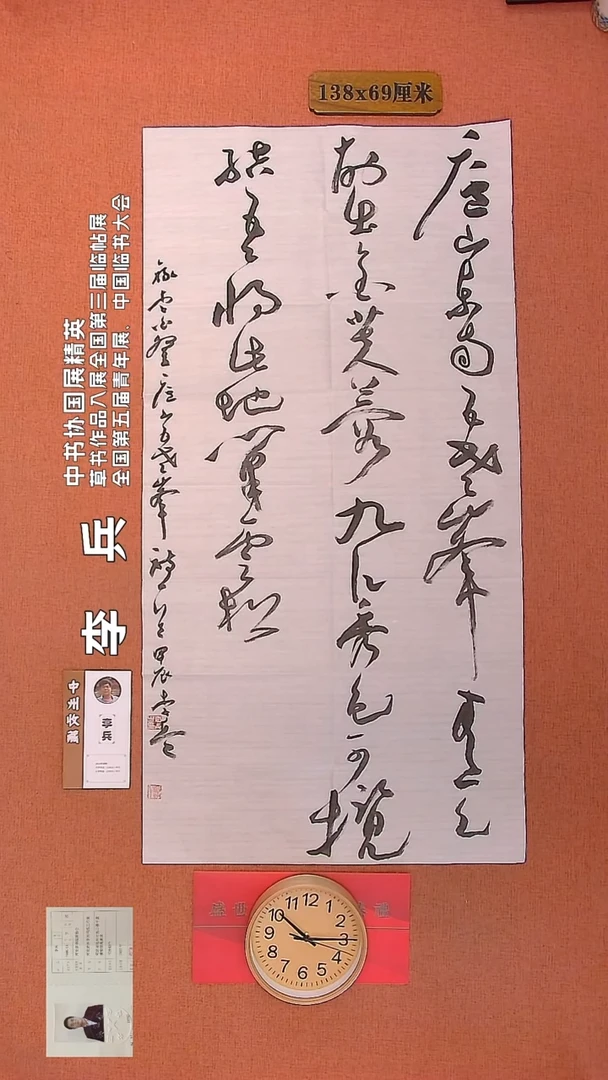 138x69厘米
庐山东南五老峰青天
削出金芙蓉九江秀色可揽
结吾将此地巢云松
录李白登庐山五老峰诗一首甲辰李兵
中书协国展精英
草书作品入展全国第三届临帖展
全国第五届青年展，中国临书大会
李 兵
李兵
盛世
12
1
2
3
4
5
6
7
8
9
10
11